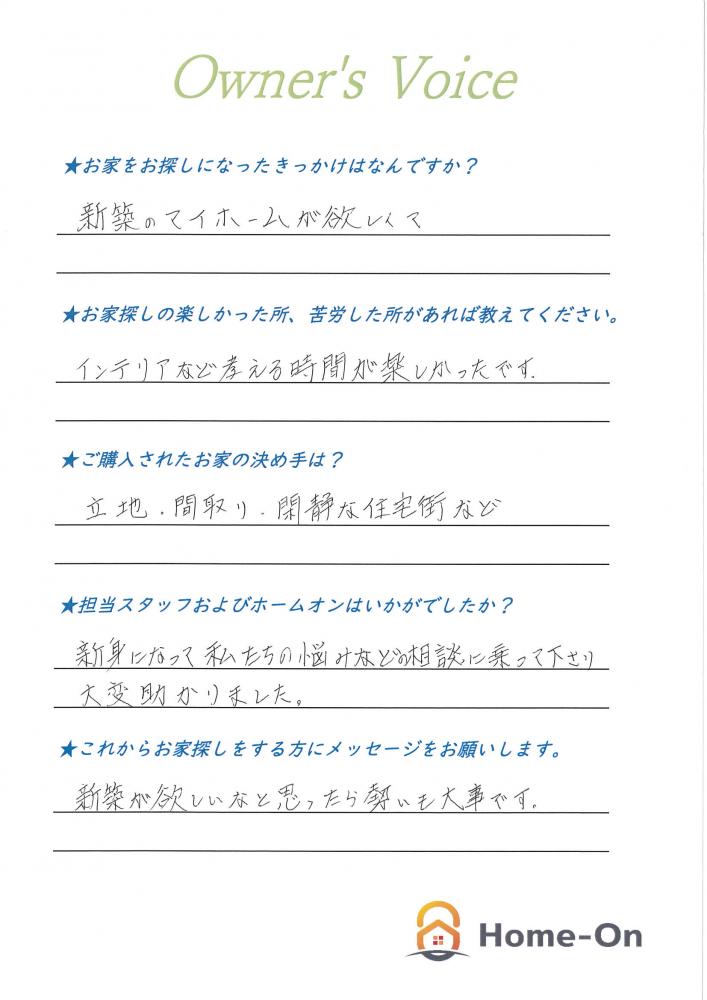 Owner's Voice
★お家をお探しになったきっかけはなんですか？
新築のマイホームが欲しくて
★お家探しの楽しかった所、苦労した所があれば教えてください。
インテリアなど考える時間が楽しかったです.
★ご購入されたお家の決め手は？
立地.間取り.閑静な住宅街など
★担当スタッフおよびホームオンはいかがでしたか？
新身になって私たちの悩みなどの相談に乗って下さり
大変助かりました。
★これからお家探しをする方にメッセージをお願いします。
新築が欲しいなと思ったら勢いも大事です.
Home-On